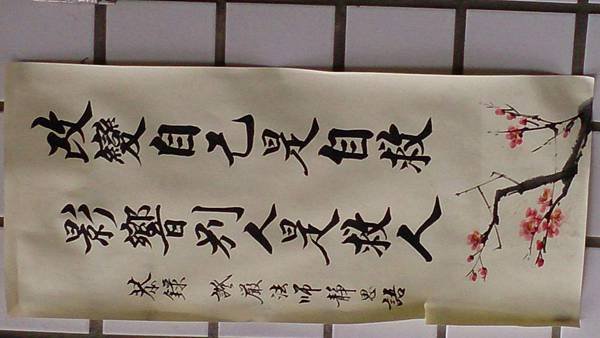 改變自己是自救
影響別人是救人
恭錄 證嚴法師靜思語